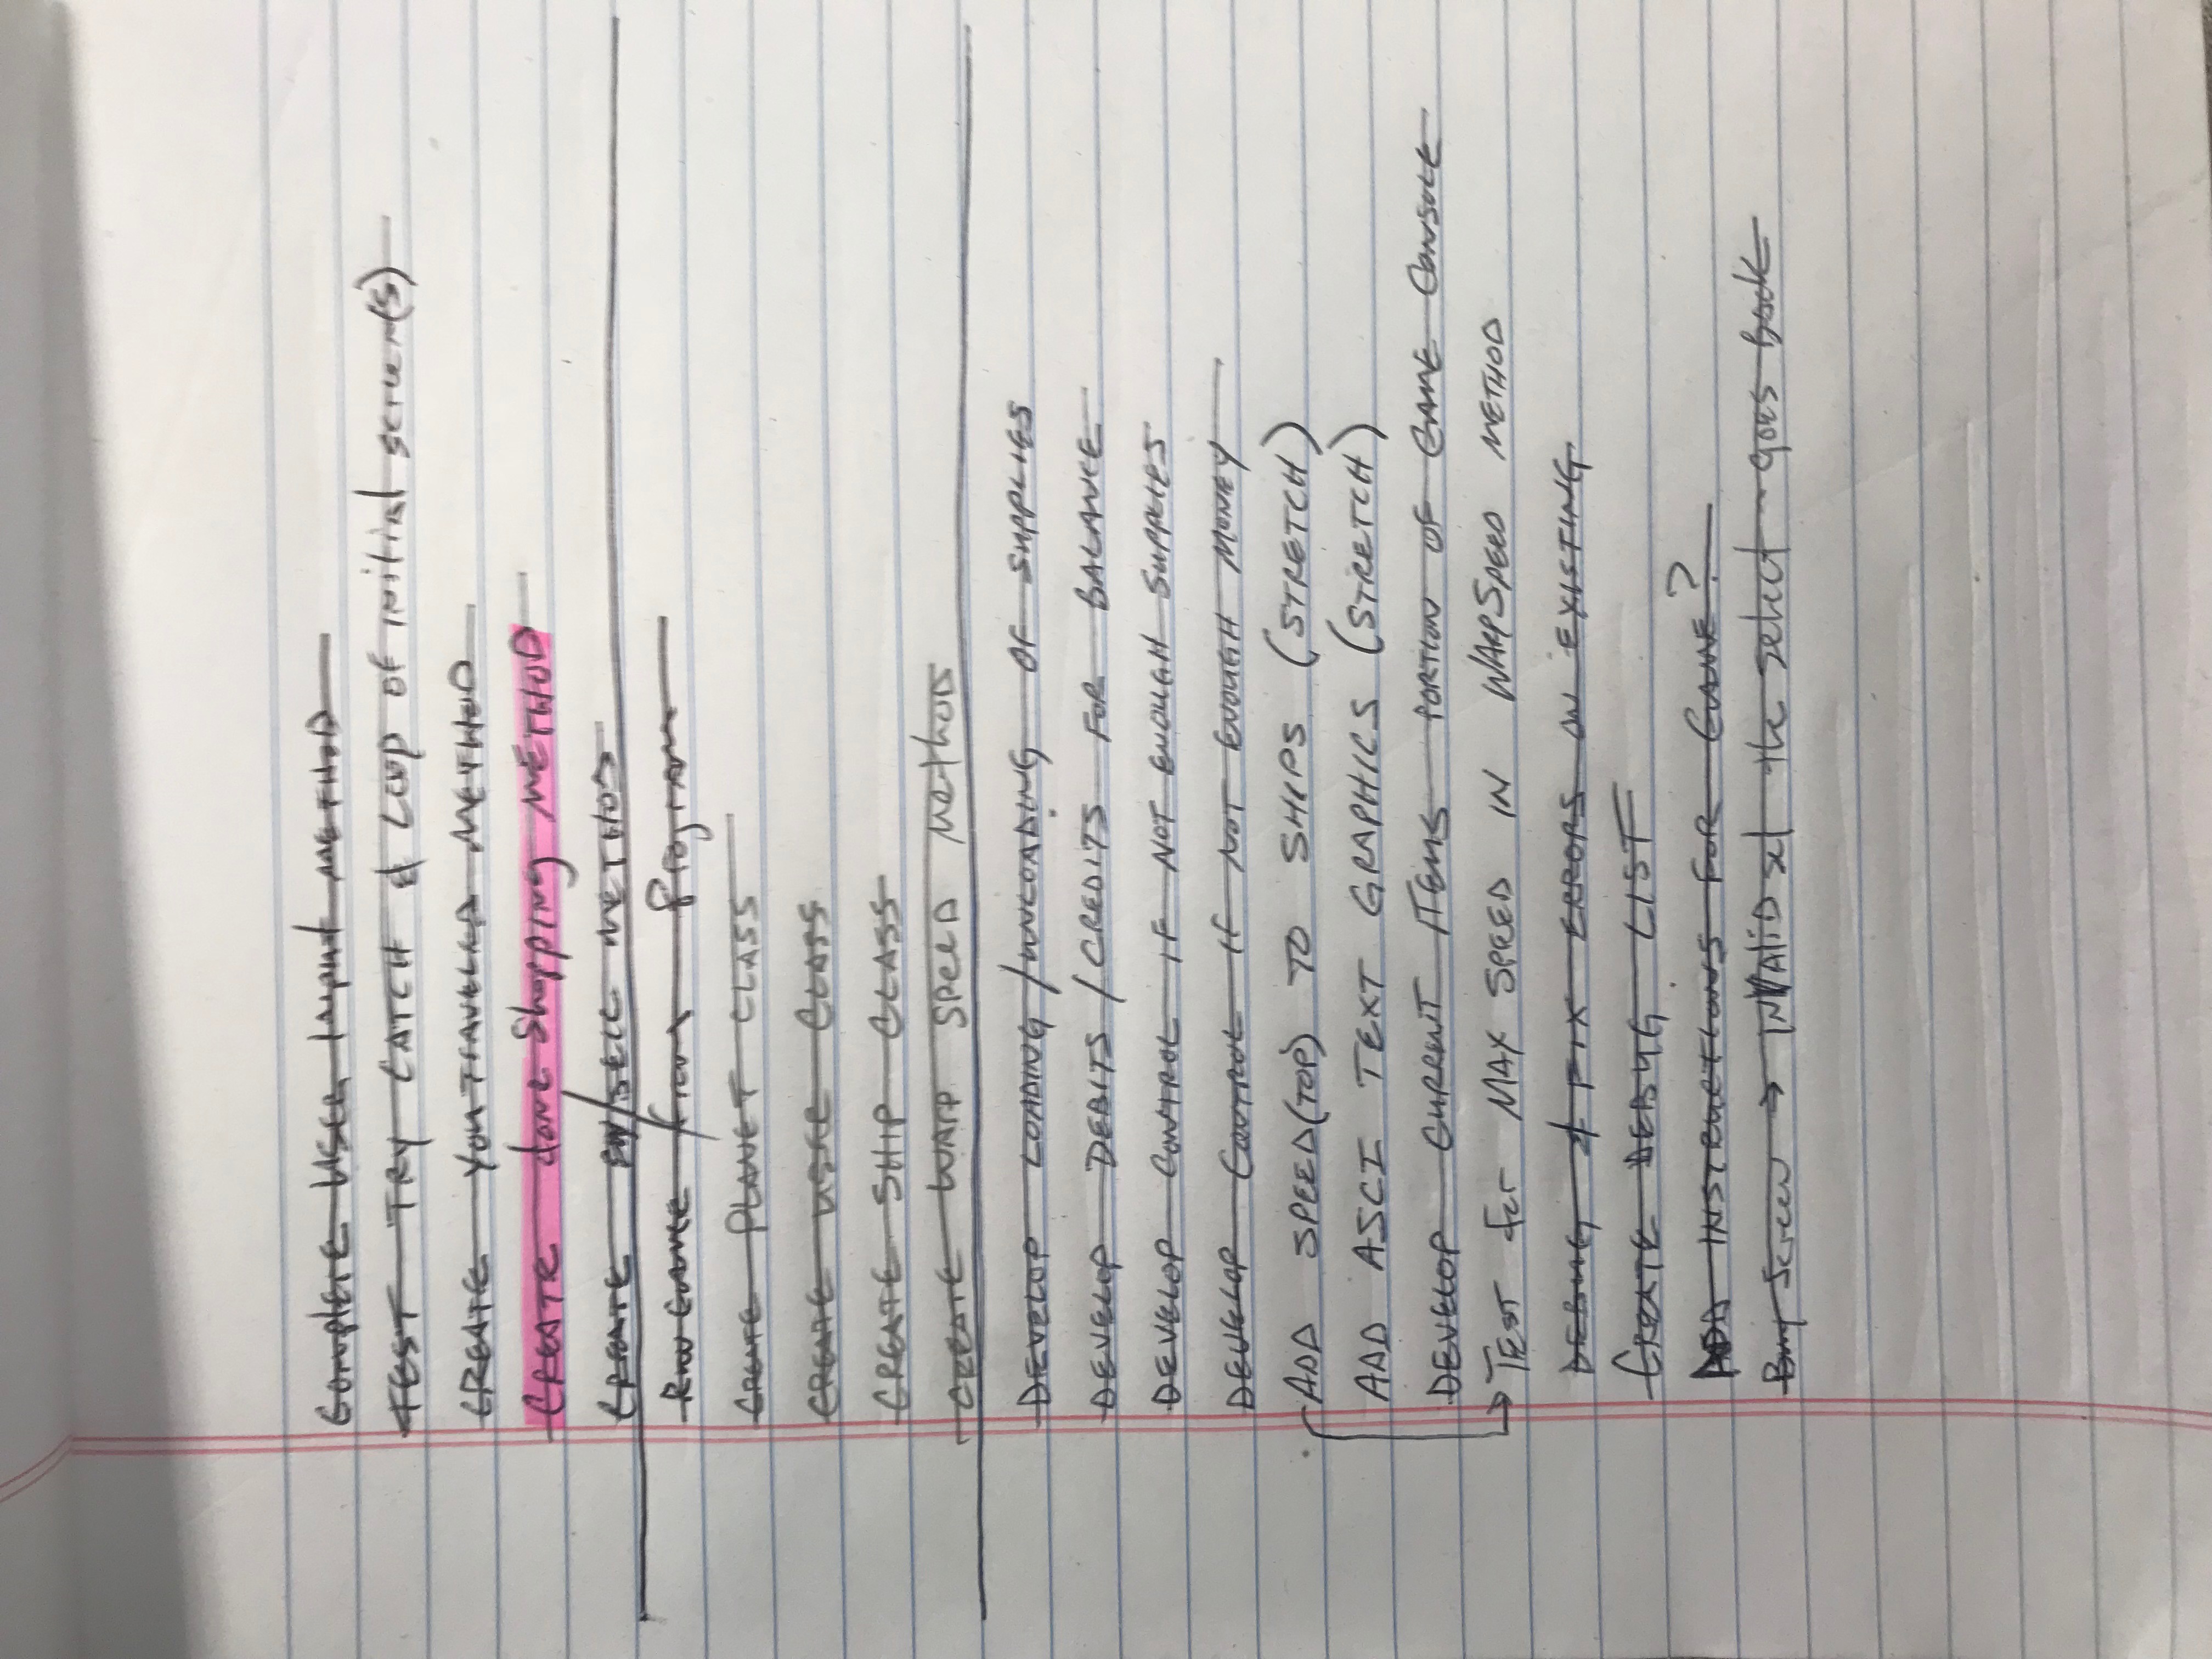 Complete User Input METHOD
TEST TRY CATCH & LOOP OF initial screen(s)
CREATE YOUTRAVELED METHOD
CREATE doneShopping METHOD
CREATE BUY/SELL METHOD
RUN GAME from Program
CREATE PLANET CLASS
CREATE USER CLASS
CREATE SHIP CLASS
CREATE WARP SPEED Method
DEVELOP LOADING/UNLOADING OF SUPPLIES
DEVELOP DEBITS/CREDITS FOR BALANCE
DEVELOP CONTROL IF NOT ENOUGH SUPPLIES
DEVELOP CONTROL IF NOT ENOUGH MONEY
ADD SPEED(TOP) TO SHIPS (STRETCH)
ADD ASCI TEXT GRAPHICS (STRETCH)
DEVELOP CURRENT ITEMS PORTION OF GAME CONSOLE
TEST for MAX SPEED IN WARPSPEED METHOD
DEBUG & FIX ERRORS ON EXISTING
CREATE DEBUG LIST
ADD INSTRUCTIONS FOR GAME?
Buy Screen → INVALID sel the select - GOES BACK